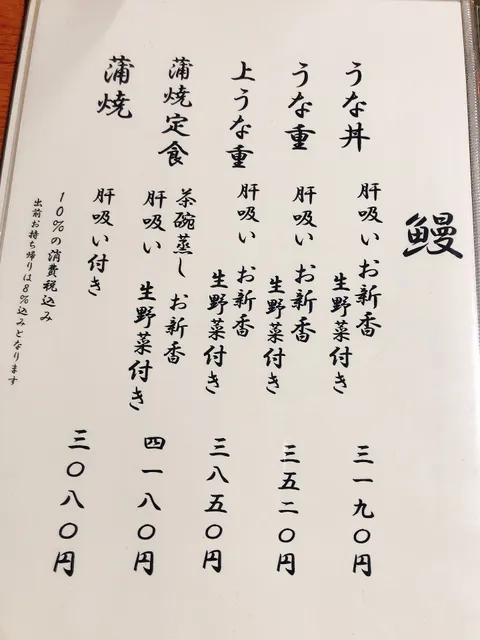 鰻
うな丼
肝吸い お新香
生野菜付き
三一九〇円
うな重
肝吸い お新香
生野菜付き
三五二〇円
上うな重
肝吸い お新香
生野菜付き
三八五〇円
蒲焼定食
茶碗蒸し お新香
肝吸い 生野菜付き
四一八〇円
蒲焼
肝吸い付き
三〇八〇円
10%の消費税込み
出前お持ち帰りは8%込みとなります